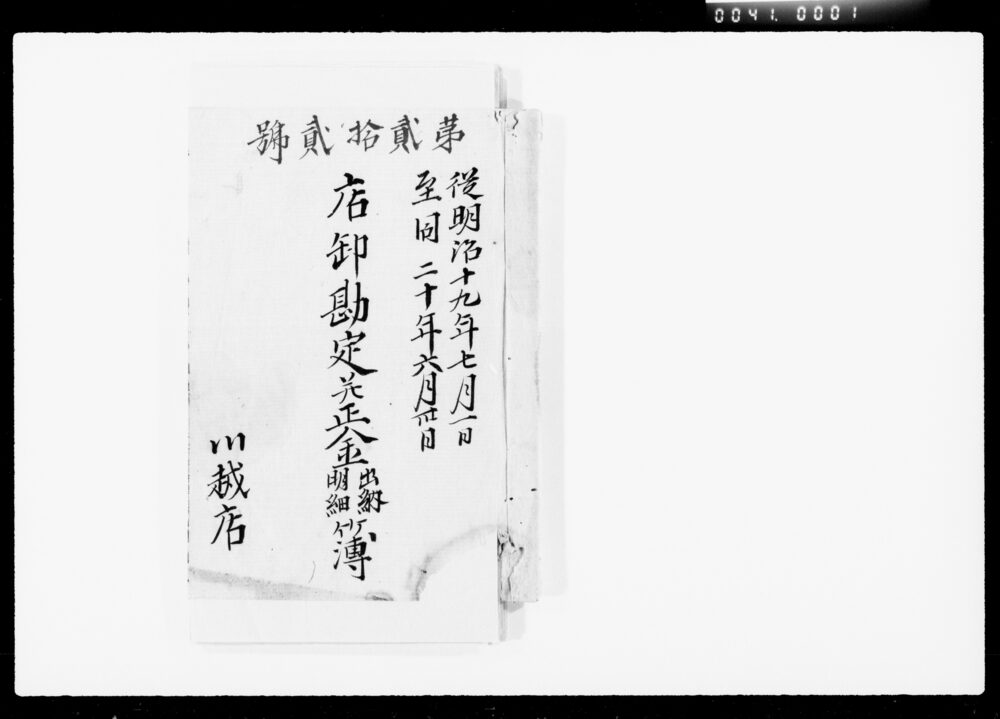 0041. 0001
第貳拾貳號
従明治十九年七月一日
至同二十年六月卅日
店卸勘定並正金出納明細簿
川越店